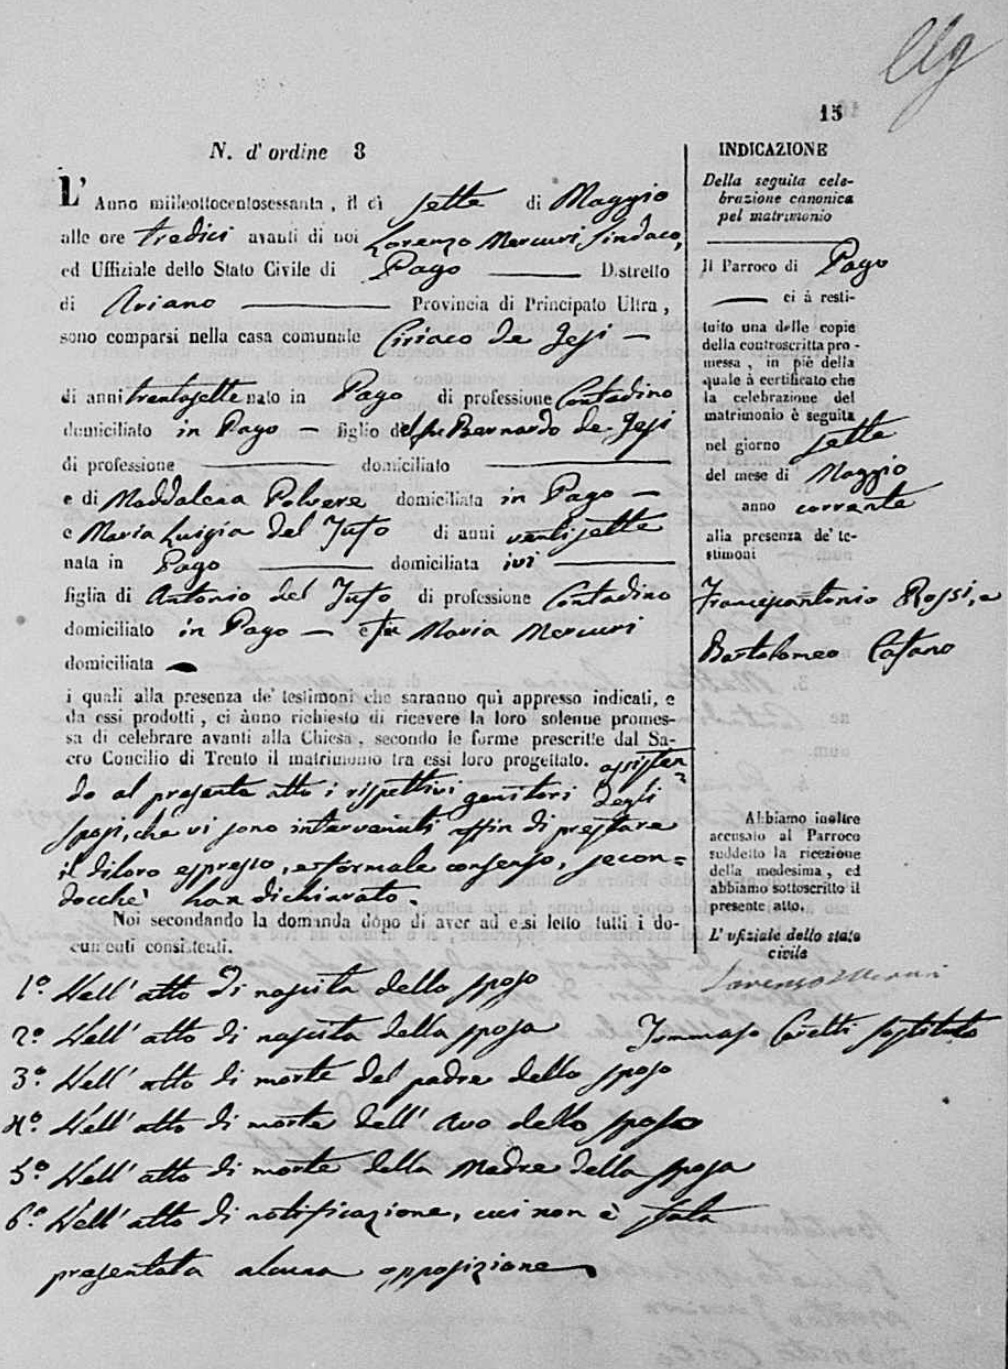 15
N. d' ordine 8
L' Anno milleottocentosessanta, il dì sette di Maggio
alle ore tredici avanti di noi Lorenzo Mercuri Sindaco,
ed Uffiziale dello Stato Civile di Pago Distretto
di Ariano Provincia di Principato Ultra,
sono comparsi nella casa comunale Ciriaco de Jesi
di anni trentasette nato in Pago di professione Contadino
domiciliato in Pago figlio del fu Bernardo de Jesi
di professione domiciliato
e di Maddalena Polvere domiciliata in Pago
e Maria Luigia del Juso di anni ventisette
nata in Pago domiciliata ivi
figlia di Antonio del Juso di professione Contadino
domiciliato in Pago e fu Maria Mercuri
domiciliata
i quali alla presenza de' testimoni che saranno quì appresso indicati, e
da essi prodotti, ci ànno richiesto di ricevere la loro solenne promes-
sa di celebrare avanti alla Chiesa, secondo le forme prescritte dal Sa-
cro Concilio di Trento il matrimonio tra essi loro progettato. assisten
do al presente atto i rispettivi genitori degli
sposi, che vi sono intervenuti affin di prestare
il diloro espresso, e formale consenso, secon=
docchè han dichiarato.
Noi secondando la domanda dopo di aver ad essi letto tutti i do-
cumenti consistenti.
1º Nell' atto di nascita dello sposo
2º Nell' atto di nascita della sposa
3º Nell' atto di morte del padre dello sposo
4º Nell' atto di morte dell' avo dello sposo
5º Nell' atto di morte della Madre della sposa
6º Nell' atto di notificazione, cui non è stata
presentata alcuna opposizione
INDICAZIONE
Della seguita cele-
brazione canonica
pel matrimonio
Il Parroco di Pago
ci à resti-
tuito una delle copie
della controscritta pro-
messa, in piè della
quale à certificato che
la celebrazione del
matrimonio è seguita
nel giorno sette
del mese di Maggio
anno corrente
alla presenza de' te-
stimoni
Francescantonio Rossi, e
Bartolomeo Casano
Abbiamo inoltre
accusato al Parroco
suddetto la ricezione
della medesima, ed
abbiamo sottoscritto il
presente atto.
L' ufiziale dello stato
civile
Lorenzo Mercuri
Tommaso Caretti sostituto